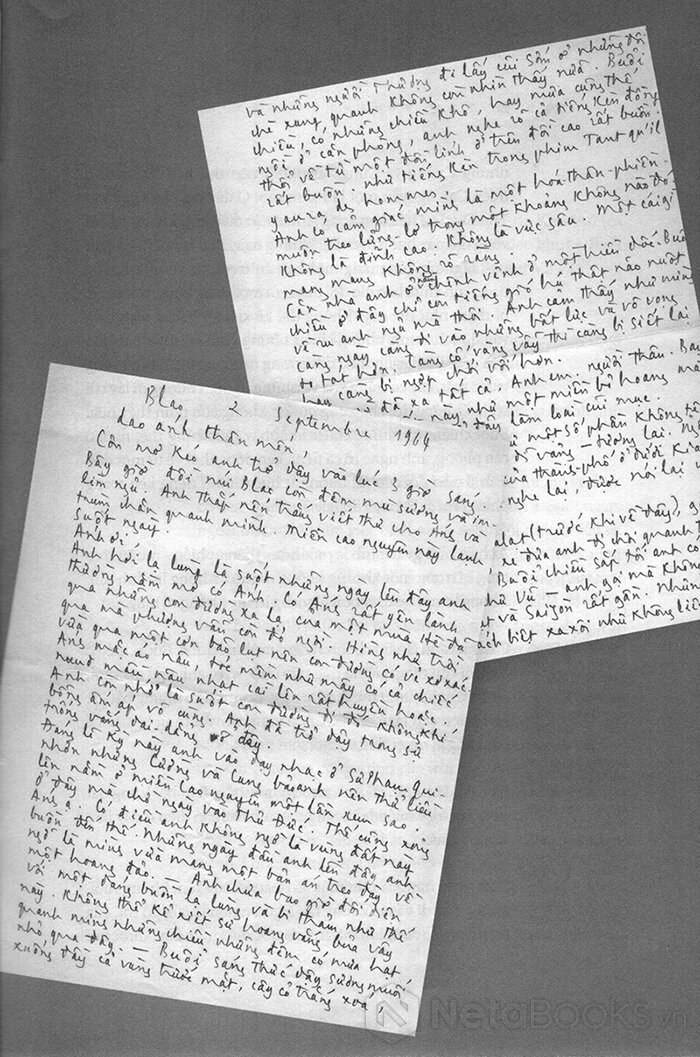 Blao, 2 Septembre 1964
Dao anh thân mến,
Cơn mơ kéo anh trở dậy vào lúc 3 giờ sáng.
Bây giờ đồi núi Blao còn đẫm mùi sương và im-
lìm ngủ. Anh thắp nến trắng viết thư cho Ánh và
trùm chăn quanh mình. Miền cao nguyên này lạnh
suốt ngày.
Ánh ơi,
Ánh hỡi, lạ lùng là suốt những ngày lên đây anh
thường nằm mơ có Ánh. Có Ánh rất yên lành
qua những con đường xa lạ của một mùa Hè đã
qua mà phượng vẫn còn đỏ ngời. Hình như trời
vừa qua một cơn bão lụt nên con đường có vẻ xơ xác.
Ánh mặc áo nâu, trẻ mềm như mây có cả chiếc
nơ màu nâu nhạt cài lên rất huyền hoặc.
Anh còn nhớ là suốt con đường đi đó không khí
bỗng ấm áp vô cùng. Anh đã trở dậy trong sự
trống vắng dai-dẳng ở đây.
Đáng lẽ kỳ này anh vào dạy nhạc ở Sư Phạm Qui-
nhơn nhưng Cường và Cung bảo anh nên thử liều
lên nằm ở miền Cao nguyên một lần xem sao.
Ở đây mà chờ ngày vào Thủ Đức. Thế cũng xong
Ánh ạ. Có điều anh không ngờ là vùng đất này
buồn đến thế. Những ngày đầu anh lên đây anh
ngỡ là mình vừa mang một bản án treo đày về
một hoang đảo. — Anh chưa bao giờ đối diện
với một dáng buồn lạ lùng và bi thảm như thế
này. Không thể kể xiết sự hoang vắng bủa vây
quanh mình những chiều những đêm có mưa hạt
nhỏ qua đây. — Buổi sáng thức dậy sương muối
xuống đầy cả vùng trước mắt, cây cỏ trắng xoá
và những người Thượng đi lấy củi sớm ở những đồi
chè xung quanh không còn nhìn thấy nữa. Buổi
chiều, có những chiều khô, hay mưa cũng thế
ngồi ở căn phòng, anh nghe rõ cả tiếng kèn đồng
thổi về từ một đồn lính ở trên đồi cao rất buồn.
rất buồn như tiếng kèn trong phim Tant qu'il
y aura des hommes,
Anh có cảm giác mình là một hóa thân-phiền-
muộn treo lửng-lơ trong một khoảng không nào đó
không là đỉnh cao. Không là vực sâu. Một cái gì
mang mang không rõ ràng.
Căn nhà anh ở nằm chênh vênh ở một triền dốc. Buổi
chiều ở đây chỉ còn tiếng gió hú thật não nuột
về ru anh ngủ mà thôi. Anh cảm thấy như mình
càng ngày càng đi vào những bất lực và vô vọng
Càng cố vùng vẫy thì càng bị siết lại
hơn.
đã xa tất cả. Anh em. người thân. Bạn
này như một miền bỏ hoang mà
làm loài cùi mục.
một số phận không tê
dĩ vãng — tương lai.
của thành-phố ở dưới kia
nghe lại, được nói lại
Dalat (trước khi về đây),
xe đưa anh đi chơi quanh
Buổi chiều sắp tối anh
Vũ — anh gì mà không
và Saigon rất gần. Nhưng
cách biệt xa xôi như không
NetaBooks.vn